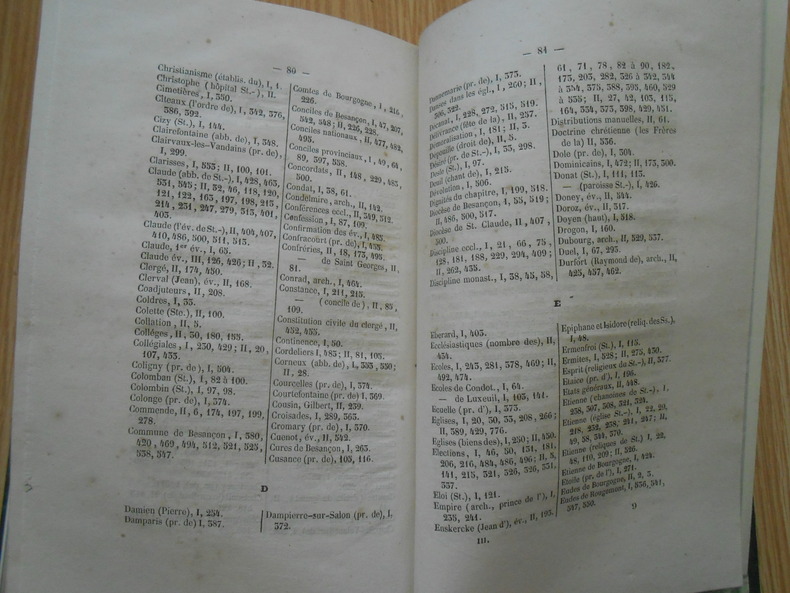 — 80 —
Christianisme (établis. du), I, 1.
Christophe (hôpital St.-), II.
Cimetières, I, 350.
Citeaux (l'ordre de), I, 342, 376,
386, 392.
Cizy (St.), I, 144.
Clairefontaine (abb. de), I, 348.
Clairvaux-les-Vandains (pr. de),
I, 299.
Clarisses, I, 553; II, 100, 101.
Claude (abb. de St.-) I, 428, 465,
531, 545; II, 52, 46, 118, 120,
121, 122, 165, 197, 198, 215,
214, 251, 247, 279, 315, 401,
403.
Claude (l'év. de St.-), II, 404, 407,
410, 486, 500, 511, 515.
Claude, 1er év., I, 65.
Claude év., III, 126, 426; II, 52.
Clergé, II, 174, 450.
Clerval (Jean), év., II, 168.
Coadjuteurs, II, 208.
Coldres, I, 35.
Colette (Ste.), II, 100.
Collation, II, 5.
Colléges, II, 50, 180, 155.
Collégiales, I, 250, 429; II, 20,
107, 455.
Coligny (pr. de), I, 504.
Colomban (St.), I, 82 à 100.
Colombin (St.), I, 97, 98.
Colonge (pr. de), I, 574.
Commende, II, 6, 174, 197, 199,
278.
Commune de Besançon, I, 580,
420, 469, 494, 512, 521, 525,
538, 547.
Comtes de Bourgogne, I, 216,
226.
Conciles de Besançon, I, 47, 207,
542, 548; II, 226, 228.
Conciles nationaux, II, 477, 482,
495.
Conciles provinciaux, I, 49, 64,
89, 597, 558.
Concordats, II, 148, 229, 485,
500.
Condat, I, 58, 61.
Condelmire, arch., II, 142.
Conférences eccl., II, 549, 512.
Confession, I, 87, 109.
Confirmation des év., I, 485.
Confracourt (pr. de), I, 455.
Confréries, II, 18, 175, 495.
— de Saint Georges, II,
81.
Conrad, arch., I, 464.
Constance, I, 211, 215.
— (concile de), II, 85,
109.
Constitution civile du clergé, II,
452, 453.
Continence, I, 50.
Cordeliers I, 485; II, 81, 105.
Corneux (abb. de), I, 555, 550;
II, 28.
Courcelles (pr. de), I, 574.
Courtefontaine (pr. de) I, 569.
Cousin, Gilbert, II, 259.
Croisades, I, 289, 563.
Cromary (pr. de), I, 570.
Cuenot, év., II, 542.
Cures de Besançon, I, 265.
Cusance (pr. de), 105, 116.
D
Damien (Pierre), I, 254.
Damparis (pr. de) I, 587.
Dampierre-sur-Salon (pr. de), I,
572.
— 81 —
Dannemarie (pr. de), I, 575.
Danses dans les égl., I, 260; II,
506, 522.
Décanat, I, 228, 272, 515, 519.
Délivrance (fête de la), II, 257.
Démoralisation, I, 181; II, 5.
Dégouille (droit de), II, 5.
Désiré (pr. de St.-), I, 55, 298.
Dede (St.), I, 97.
Deuil (chant de), I, 215.
Dévolution, I, 506.
Dignités du chapitre, I, 199, 518.
Diocèse de Besançon, I, 55, 519;
II, 486, 500, 517.
Diocèse de St. Claude, II, 407,
500.
Discipline eccl., I, 21, 66, 75,
128, 181, 188, 229, 294, 409;
II, 262, 455.
Discipline monast., I, 38, 45, 58,
61, 71, 78, 82 à 90, 182,
175, 205, 282, 526 à 542, 544
à 554, 575, 588, 595, 460, 529
à 555; II, 27, 42, 105, 115,
164, 554, 575, 598, 429, 451.
Distributions manuelles, II, 61.
Doctrine chrétienne (les Frères
de la) II, 556.
Dole (pr. de), I, 504.
Dominicains, I, 472; II, 175, 500.
Donat (St.), I, 111, 115.
— (paroisse St.-), I, 426.
Doney, év., II, 544.
Doroz, év., II, 517.
Doyen (haut), I, 518.
Drogon, I, 160.
Dubourg, arch., II, 529, 557.
Duel, I, 67, 295.
Durfort (Raymond de), arch., II,
425, 457, 462.
E
Eberard, I, 405.
Ecclésiastiques (nombre des), II,
454.
Ecoles, I, 245, 281, 578, 469; II,
492, 474.
Ecoles de Condot., I, 64.
— de Luxeuil, I, 105, 141.
Ecuelle (pr. d'), I, 575.
Eglises, I, 20, 50, 55, 208, 266;
II, 589, 429, 776.
Eglises (biens des), I, 250; II, 450.
Elections, I, 46, 50, 151, 181,
206, 216, 484, 486, 496; II, 5,
141, 215, 521, 526, 526, 551,
557.
Eloi (St.), I, 121.
Empire (arch., prince de l'), I,
255, 241.
Enskercke (Jean d'), év., II, 195.
Epiphane et Isidore (reliq. des St.),
I, 48.
Ermenfroi (St.), I, 115.
Ermites, I, 528; II, 275, 450.
Esprit (religieux du St.-), II, 577.
Etaice (pr. d'), I, 196.
Etats généraux, II, 448.
Etienne (chanoines de St.-), I,
258, 507, 508, 521, 524.
Etienne (église St.-), I, 22, 29,
218, 252, 258, 241, 247; II,
49, 58, 544, 570.
Etienne (reliques de St.), I, 22,
48, 110, 209; II, 526.
Etienne de Bourgogne, I, 424.
Etoile (pr. de l'), I, 271.
Eudes de Bourgogne, II, 2, 5.
Eudes de Rougemont, I, 856, 541,
547, 550.
III.
9